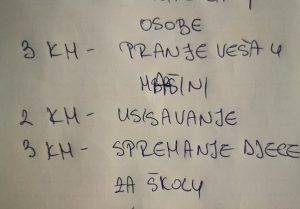 OSOBE
3 KM - PRANJE VEŠA U
MAŠINI
2 KM - USISAVANJE
3 KM - SPREMANJE DJECE
ZA ŠKOLU